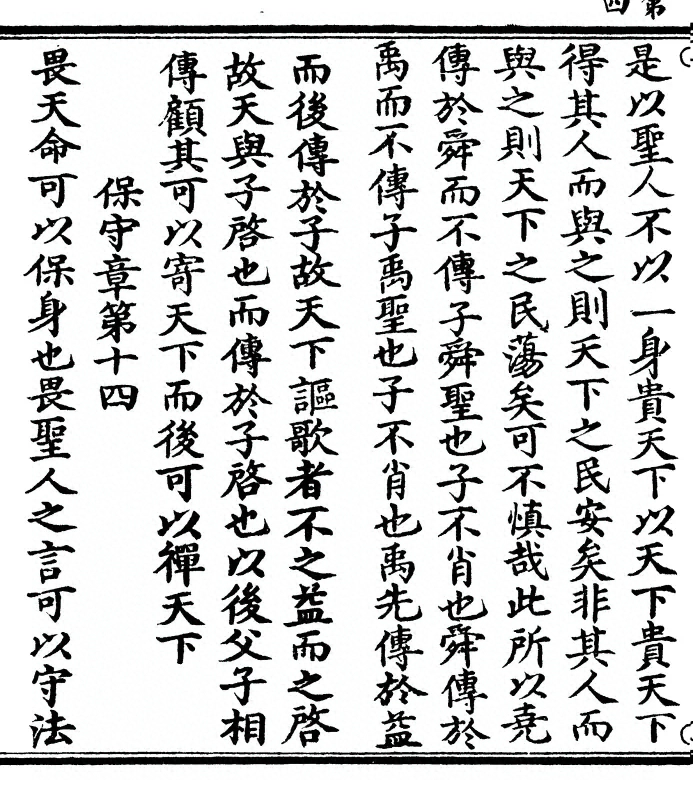 第四
是以聖人不以一身貴天下以天下貴天下
得其人而與之則天下之民安矣非其人而
與之則天下之民蕩矣可不慎哉此所以堯
傳於舜而不傳子舜聖也子不肖也舜傳於
禹而不傳子禹聖也子不肖也禹先傳於益
而後傳於子故天下謳歌者不之益而之啓
故天與子啓也而傳於子啓也以後父子相
傳顧其可以寄天下而後可以禪天下
保守章第十四
畏天命可以保身也畏聖人之言可以守法